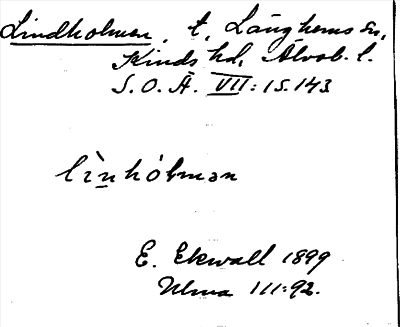 Lindholmen, t, Länghems sn,
Kinds hd, Älvsb. l.
S.O.Ä. VII: 15.143
lìnhólmən
E. Ekwall 1899
Ulma 111:92.